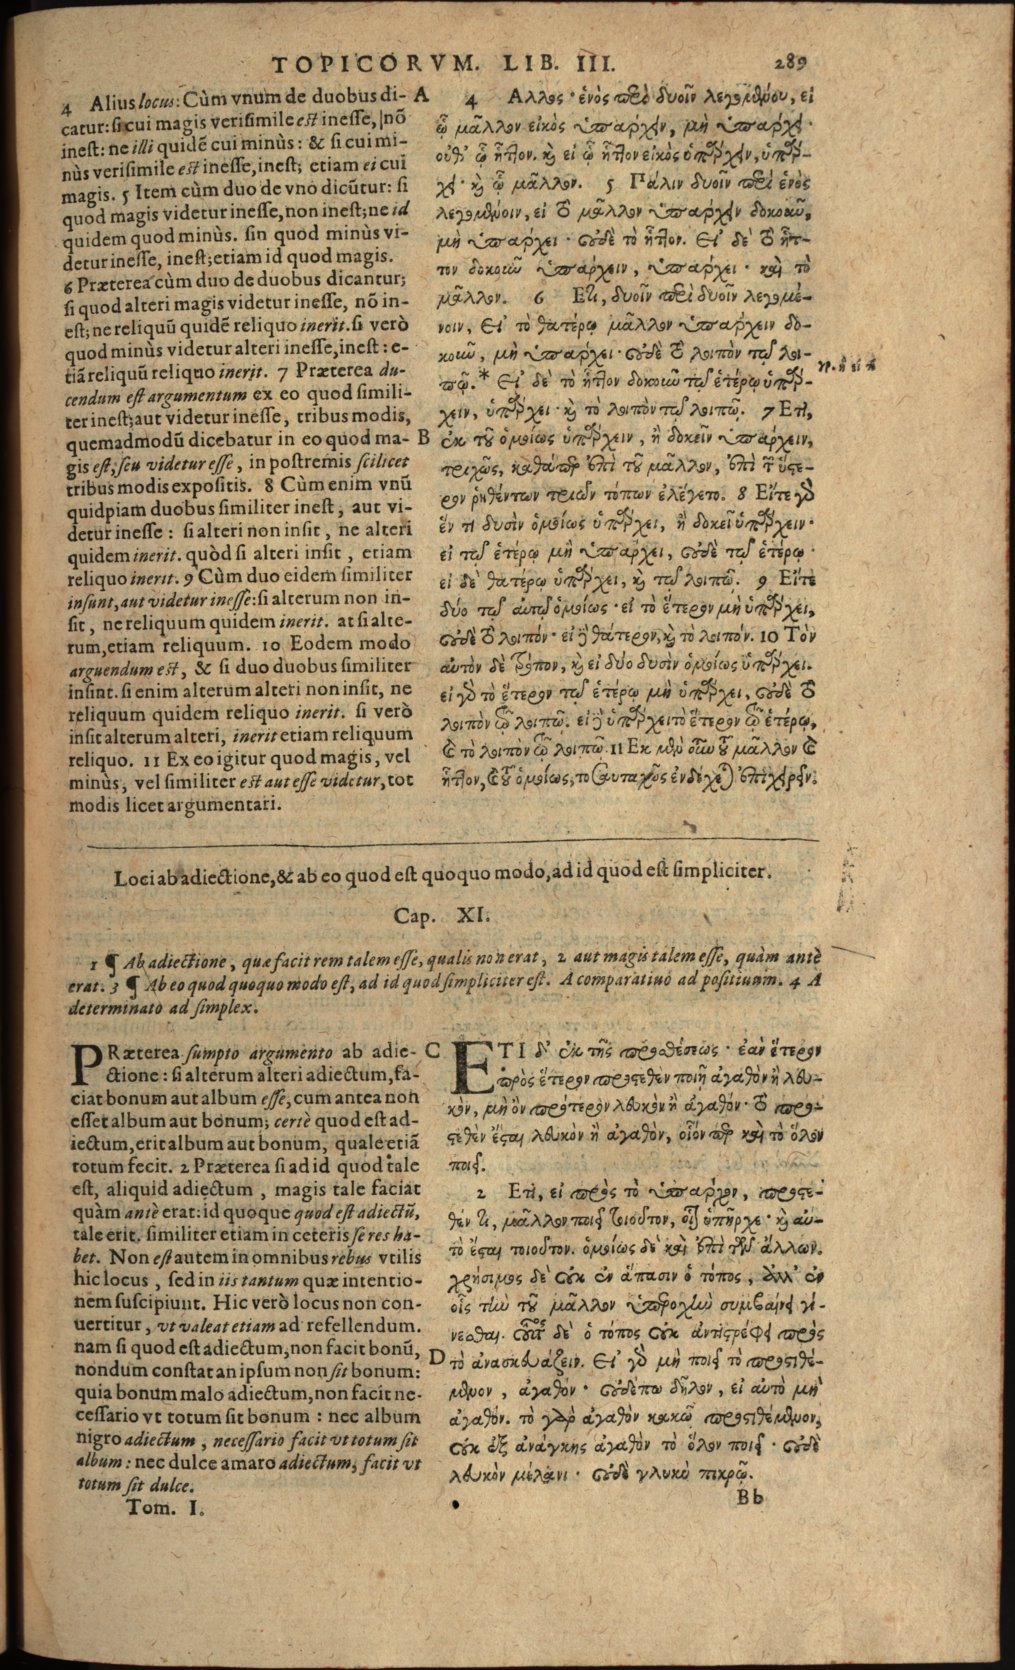 TOPICORVM. LIB. III. 289
4 Alius locus: Cùm vnum de duobus di-
catur: si cui magis verisimile est inesse, nō
inest: ne illi quidē cui minùs: & si cui mi-
nùs verisimile est inesse, inest; etiam ei cui
magis. 5 Item cùm duo de vno dicūtur: si
quod magis videtur inesse, non inest; ne id
quidem quod minùs. sin quod minùs vi-
detur inesse, inest; etiam id quod magis.
6 Præterea cùm duo de duobus dicantur;
si quod alteri magis videtur inesse, nō in-
est; ne reliquū quidē reliquo inerit. si verò
quod minùs videtur alteri inesse, inest: e-
tiā reliquū reliquo inerit. 7 Præterea du-
cendum est argumentum ex eo quod simili-
ter inest; aut videtur inesse, tribus modis,
quemadmodū dicebatur in eo quod ma-
gis est, seu videtur esse, in postremis scilicet
tribus modis expositis. 8 Cùm enim vnū
quidpiam duobus similiter inest, aut vi-
detur inesse: si alteri non insit, ne alteri
quidem inerit. quòd si alteri insit, etiam
reliquo inerit. 9 Cùm duo eidem similiter
insunt, aut videtur inesse: si alterum non in-
sit, ne reliquum quidem inerit. at si alte-
rum, etiam reliquum. 10 Eodem modo
arguendum est, & si duo duobus similiter
insint. si enim alterum alteri non insit, ne
reliquum quidem reliquo inerit. si verò
insit alterum alteri, inerit etiam reliquum
reliquo. 11 Ex eo igitur quod magis, vel
minùs, vel similiter est aut esse videtur, tot
modis licet argumentari.
A
B
4 Αλλος· ἑνὸς περὶ δυοῖν λεγομένου, εἰ
ᾧ μᾶλλον εἰκὸς ὑπάρχειν, μὴ ὑπάρχει·
οὐδ' ᾧ ἧττον. καὶ εἰ ᾧ ἧττον εἰκὸς ὑπάρχειν, ὑπάρ-
χει· καὶ ᾧ μᾶλλον. 5 Πάλιν δυοῖν περὶ ἑνὸς
λεγομένοιν, εἰ τὸ μᾶλλον ὑπάρχειν δοκοῦν,
μὴ ὑπάρχει· οὐδὲ τὸ ἧττον. Εἰ δὲ τὸ ἧτ-
τον δοκοῦν ὑπάρχειν, ὑπάρχει· καὶ τὸ
μᾶλλον. 6 Ετι, δυοῖν περὶ δυοῖν λεγομέ-
νοιν, Εἰ τὸ θατέρῳ μᾶλλον ὑπάρχειν δο-
κοῦν, μὴ ὑπάρχει· οὐδὲ τὸ λοιπὸν τῷ λοι-
πῷ.* Εἰ δὲ τὸ ἧττον δοκοῦν τῷ ἑτέρῳ ὑπάρ-
χειν, ὑπάρχει· καὶ τὸ λοιπὸν τῷ λοιπῷ. 7 Ετι,
ἐκ τοῦ ὁμοίως ὑπάρχειν, ἢ δοκεῖν ὑπάρχειν,
τριχῶς, καθάπερ ἐπὶ τοῦ μᾶλλον, ἐπὶ τῶν ὕστε-
ρον ῥηθέντων τριῶν τόπων ἐλέγετο. 8 Εἴτε γὰρ
ἕν τι δυσὶν ὁμοίως ὑπάρχει, ἢ δοκεῖ ὑπάρχειν·
εἰ τῷ ἑτέρῳ μὴ ὑπάρχει, οὐδὲ τῷ ἑτέρῳ·
εἰ δὲ θατέρῳ ὑπάρχει, καὶ τῷ λοιπῷ. 9 Εἴτε
δύο τῷ αὐτῷ ὁμοίως· εἰ τὸ ἕτερον μὴ ὑπάρχει,
οὐδὲ τὸ λοιπόν· εἰ δὲ θάτερον, καὶ τὸ λοιπόν. 10 Τὸν
αὐτὸν δὲ τρόπον, καὶ εἰ δύο δυσὶν ὁμοίως ὑπάρχει.
εἰ γὰρ τὸ ἕτερον τῷ ἑτέρῳ μὴ ὑπάρχει, οὐδὲ τὸ
λοιπὸν τῷ λοιπῷ. εἰ δὲ ὑπάρχει τὸ ἕτερον τῷ ἑτέρῳ,
καὶ τὸ λοιπὸν τῷ λοιπῷ. 11 Εκ μὲν οὖν τοῦ μᾶλλον καὶ
ἧττον, καὶ τοῦ ὁμοίως, τοσαυταχῶς ἐνδέχεται ἐπιχειρεῖν.
Loci ab adiectione, & ab eo quod est quoquo modo, ad id quod est simpliciter.
Cap. XI.
1 ¶ Ab adiectione, quæ facit rem talem esse, qualis non erat, 2 aut magis talem esse, quàm antè
erat. 3 ¶ Ab eo quod quoquo modo est, ad id quod simpliciter est. A comparatiuo ad positiuum. 4 A
determinato ad simplex.
PRæterea sumpto argumento ab adie-
ctione: si alterum alteri adiectum, fa-
ciat bonum aut album esse, cum antea non
esset album aut bonum; certè quod est ad-
iectum, erit album aut bonum, quale etiā
totum fecit. 2 Præterea si ad id quod tale
est, aliquid adiectum, magis tale faciat
quàm antè erat: id quoque quod est adiectū,
tale erit. similiter etiam in ceteris se res ha-
bet. Non est autem in omnibus rebus vtilis
hic locus, sed in iis tantum quæ intentio-
nem suscipiunt. Hic verò locus non con-
uertitur, vt valeat etiam ad refellendum.
nam si quod est adiectum, non facit bonū,
nondum constat an ipsum non sit bonum:
quia bonum malo adiectum, non facit ne-
cessario vt totum sit bonum: nec album
nigro adiectum, necessario facit vt totum sit
album: nec dulce amaro adiectum, facit vt
totum sit dulce.
Tom. I.
C
D
ΕΤΙ δ' ἐκ τῆς προσθέσεως· ἐὰν ἕτερον
πρὸς ἕτερον προστεθὲν ποιῇ ἀγαθὸν ἢ λευ-
κὸν, μὴ ὂν πρότερον λευκὸν ἢ ἀγαθόν· τὸ προσ-
τεθὲν ἔσται λευκὸν ἢ ἀγαθὸν, οἷόν περ καὶ τὸ ὅλον
ποιεῖ.
2 Ετι, εἰ πρὸς τὸ ὑπάρχον, προστε-
θέν τι, μᾶλλον ποιεῖ τοιοῦτον, οἷον ὑπῆρχε· καὶ αὐ-
τὸ ἔσται τοιοῦτον. ὁμοίως δὲ καὶ ἐπὶ τῶν ἄλλων.
χρήσιμος δὲ οὐκ ἐν ἅπασιν ὁ τόπος, ἀλλ' ἐν
οἷς τὴν τοῦ μᾶλλον ὑπεροχὴν συμβαίνει γί-
νεσθαι. οὗτος δὲ ὁ τόπος οὐκ ἀντιστρέφει πρὸς
τὸ ἀνασκευάζειν. Εἰ γὰρ μὴ ποιεῖ τὸ προστιθέ-
μενον, ἀγαθόν· οὐδέπω δῆλον, εἰ αὐτὸ μὴ
ἀγαθόν. τὸ γὰρ ἀγαθὸν κακῷ προστιθέμενον,
οὐκ ἐξ ἀνάγκης ἀγαθὸν τὸ ὅλον ποιεῖ· οὐδὲ
λευκὸν μέλανι· οὐδὲ γλυκὺ πικρῷ.
Bb